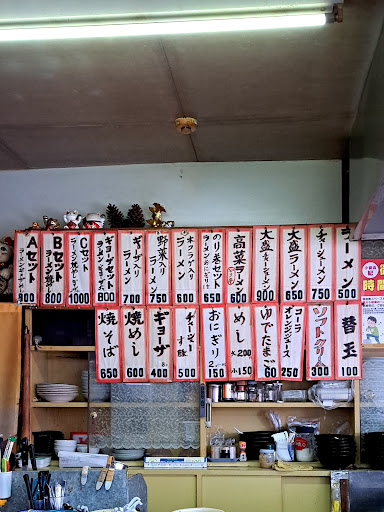 ラーメン 500
チャーシューメン 750
大盛ラーメン 650
大盛チャーシューメン 900
高菜ラーメン 600
のり巻セット 650
キクラゲ入りラーメン 600
野菜入りラーメン 750
ギョーザ入りラーメン 700
ギョーザセット 800
Cセット 1000
Bセット 800
Aセット 900
替玉 100
ソフトクリーム 300
コーラ
オレンジジュース 250
ゆでたまご 60
めし
大200
小150
おにぎり 2 150
チャーシュー 飯 500
ギョーザ 8 400
焼めし 600
焼そば 650